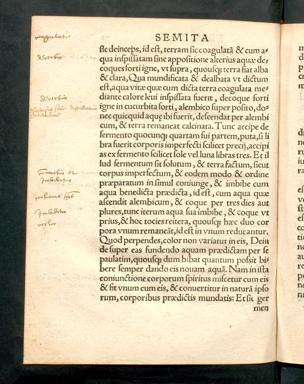 SEMITA
ste deinceps, id est, terram sic coagulatã & cum a-
qua inspissatam sine appositione alterius aquæ de-
coques forti igne, vt supra, quousq; terra fiat alba
& clara. Qua mundificata & dealbata vt dictum
est, aqua vitæ quæ cum dicta terra coagulata me
diante calore leui inspissata fuerit, decoque forti
igne in cucurbita forti, alembico super posito, do-
nec quicquid aquæ ibi fuerit, descendat per alembi
cum, & terra remaneat calcinata. Tunc accipe de
fermento quocunq; quartam sui partem, puta, si li
bra fuerit corporis imperfecti scilicet preci, accipi
as ex fermento scilicet sole vel luna libras tres. Et il
lud fermentum sit solutum, & terra factum, sicut
corpus imperfectum, & eodem modo & ordine
præparatum in simul coniunge, & imbibe cum
aqua benedicta prædicta, id est, cum aqua quæ
ascendit alembicum, & coque per tres dies aut
plures, tunc iterum aqua sua imbibe, & coque vt
prius, & hoc toties reitera, quousq; hæc duo cor
pora vnum remaneāt, id est in vnum reducantur.
Quod perpendes, color non variatur in eis. Dein
de super eas fundendo aquam prædictam per se
paulatim, quousq; dum bibat quantum possit bi-
bere semper dando eis nouam aquã. Nam in ista
coniunctione corporum spiritus miscetur cum eis
& fit vnum cum eis, & conuertitur in naturã ipso
rum, corporibus prædictis mundatis: Et sic ger
men